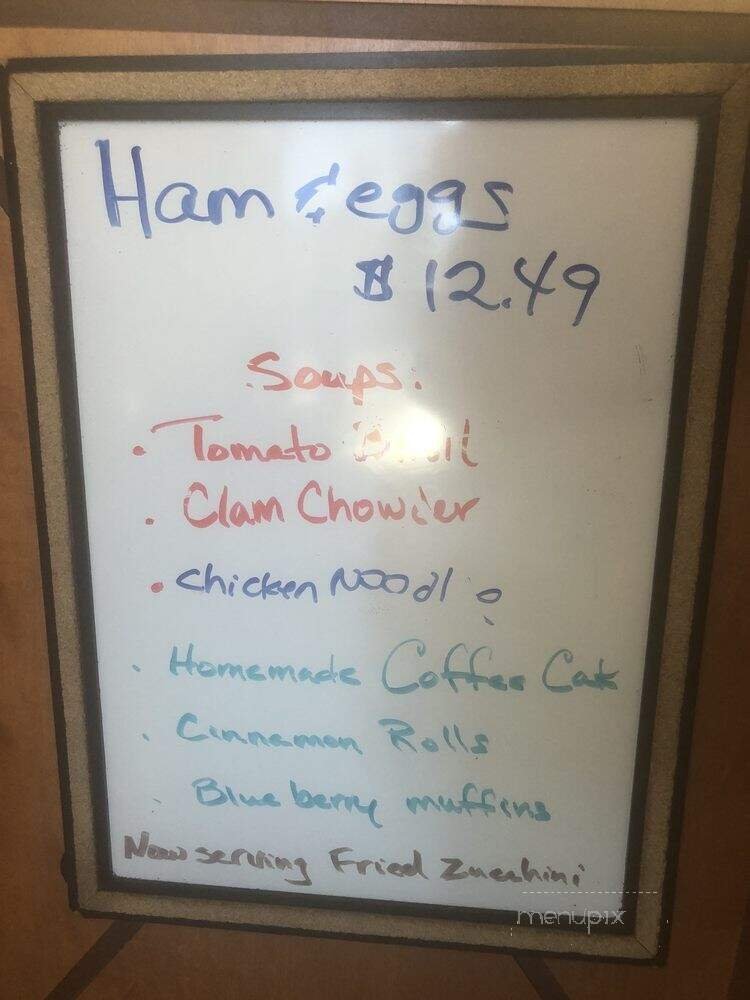 Ham & eggs
$12.49
Soups:
· Tomato
· Clam Chowder
· Chicken Noodle
· Homemade Coffee Cake
· Cinnamon Rolls
· Blueberry muffins
Now serving Fried Zucchini
menupix